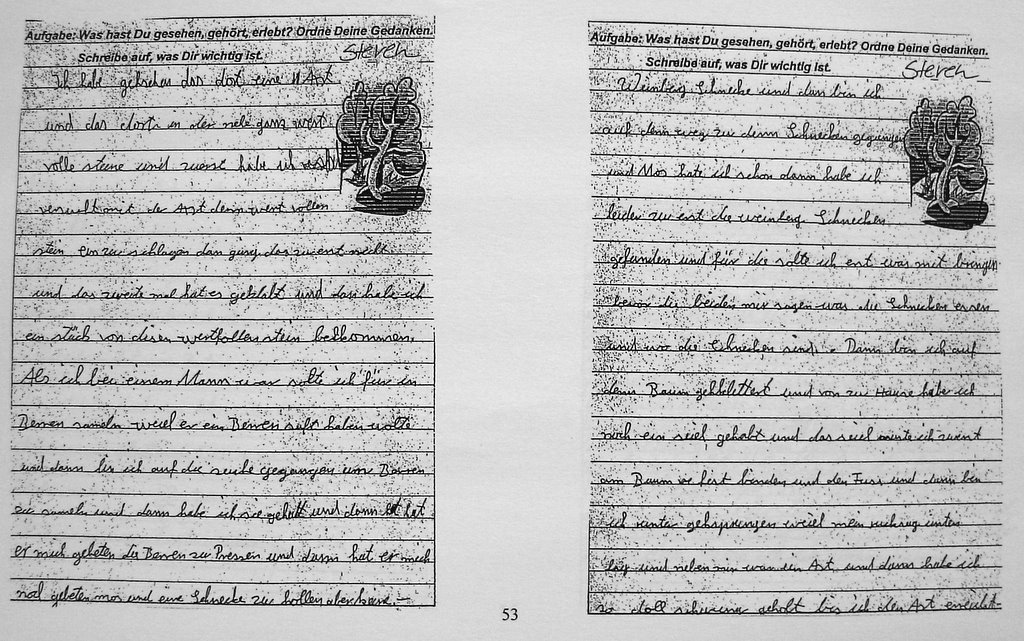 Aufgabe: Was hast Du gesehen, gehört, erlebt? Ordne Deine Gedanken.
Schreibe auf, was Dir wichtig ist.
Steven
Ich habe gesehen das dort eine Axt
und das dort in der nele ganz wert
volle steine und zuerst habe ich
versucht mit der Axt denn wert vollen
stein ein zu schlagen dan ging das zuerst nicht
und das zweite mal hat es geklabt und dan habe ich
ein stück von diesen wertfollen stein bekkommen.
Als ich bei einem Mann war solte ich für in
Beeren sameln weiel er ein Beeren saft haben wolte
und dann bin ich auf die suche gegangen um Beeren
zu sameln und dann habe ich sie gehabt und dann hat
er mich gebeten die Beeren zu Pressen und dann hat er mich
noch gebeten mos und eine Schnecke zu hollen aber
53
Aufgabe: Was hast Du gesehen, gehört, erlebt? Ordne Deine Gedanken.
Schreibe auf, was Dir wichtig ist.
Steven
Weinberg Schnecke und dan bin ich
auf dem weg zu denn Schnecken gegangen
und Mos hate ich schon dann habe ich
leider zu erst die weinberg Schnecken
gefunden und für die solte ich erst was mit bringen
bevor die beiden mir sagen was die Schnecken essen
und wo die Schnecken sind. Dann bin ich auf
denn Baum geklettert und von zu Hause habe ich
noch ein seiel gehabt und das seiel muste ich zuerst
am Baum fest binden und den Fuss und dann bin
ich runter gehsprungen weiel mein rucksag unten
lag und neben mir war ein Ast, und dann habe ich
so doll schwung geholt bis ich den Ast erreicht